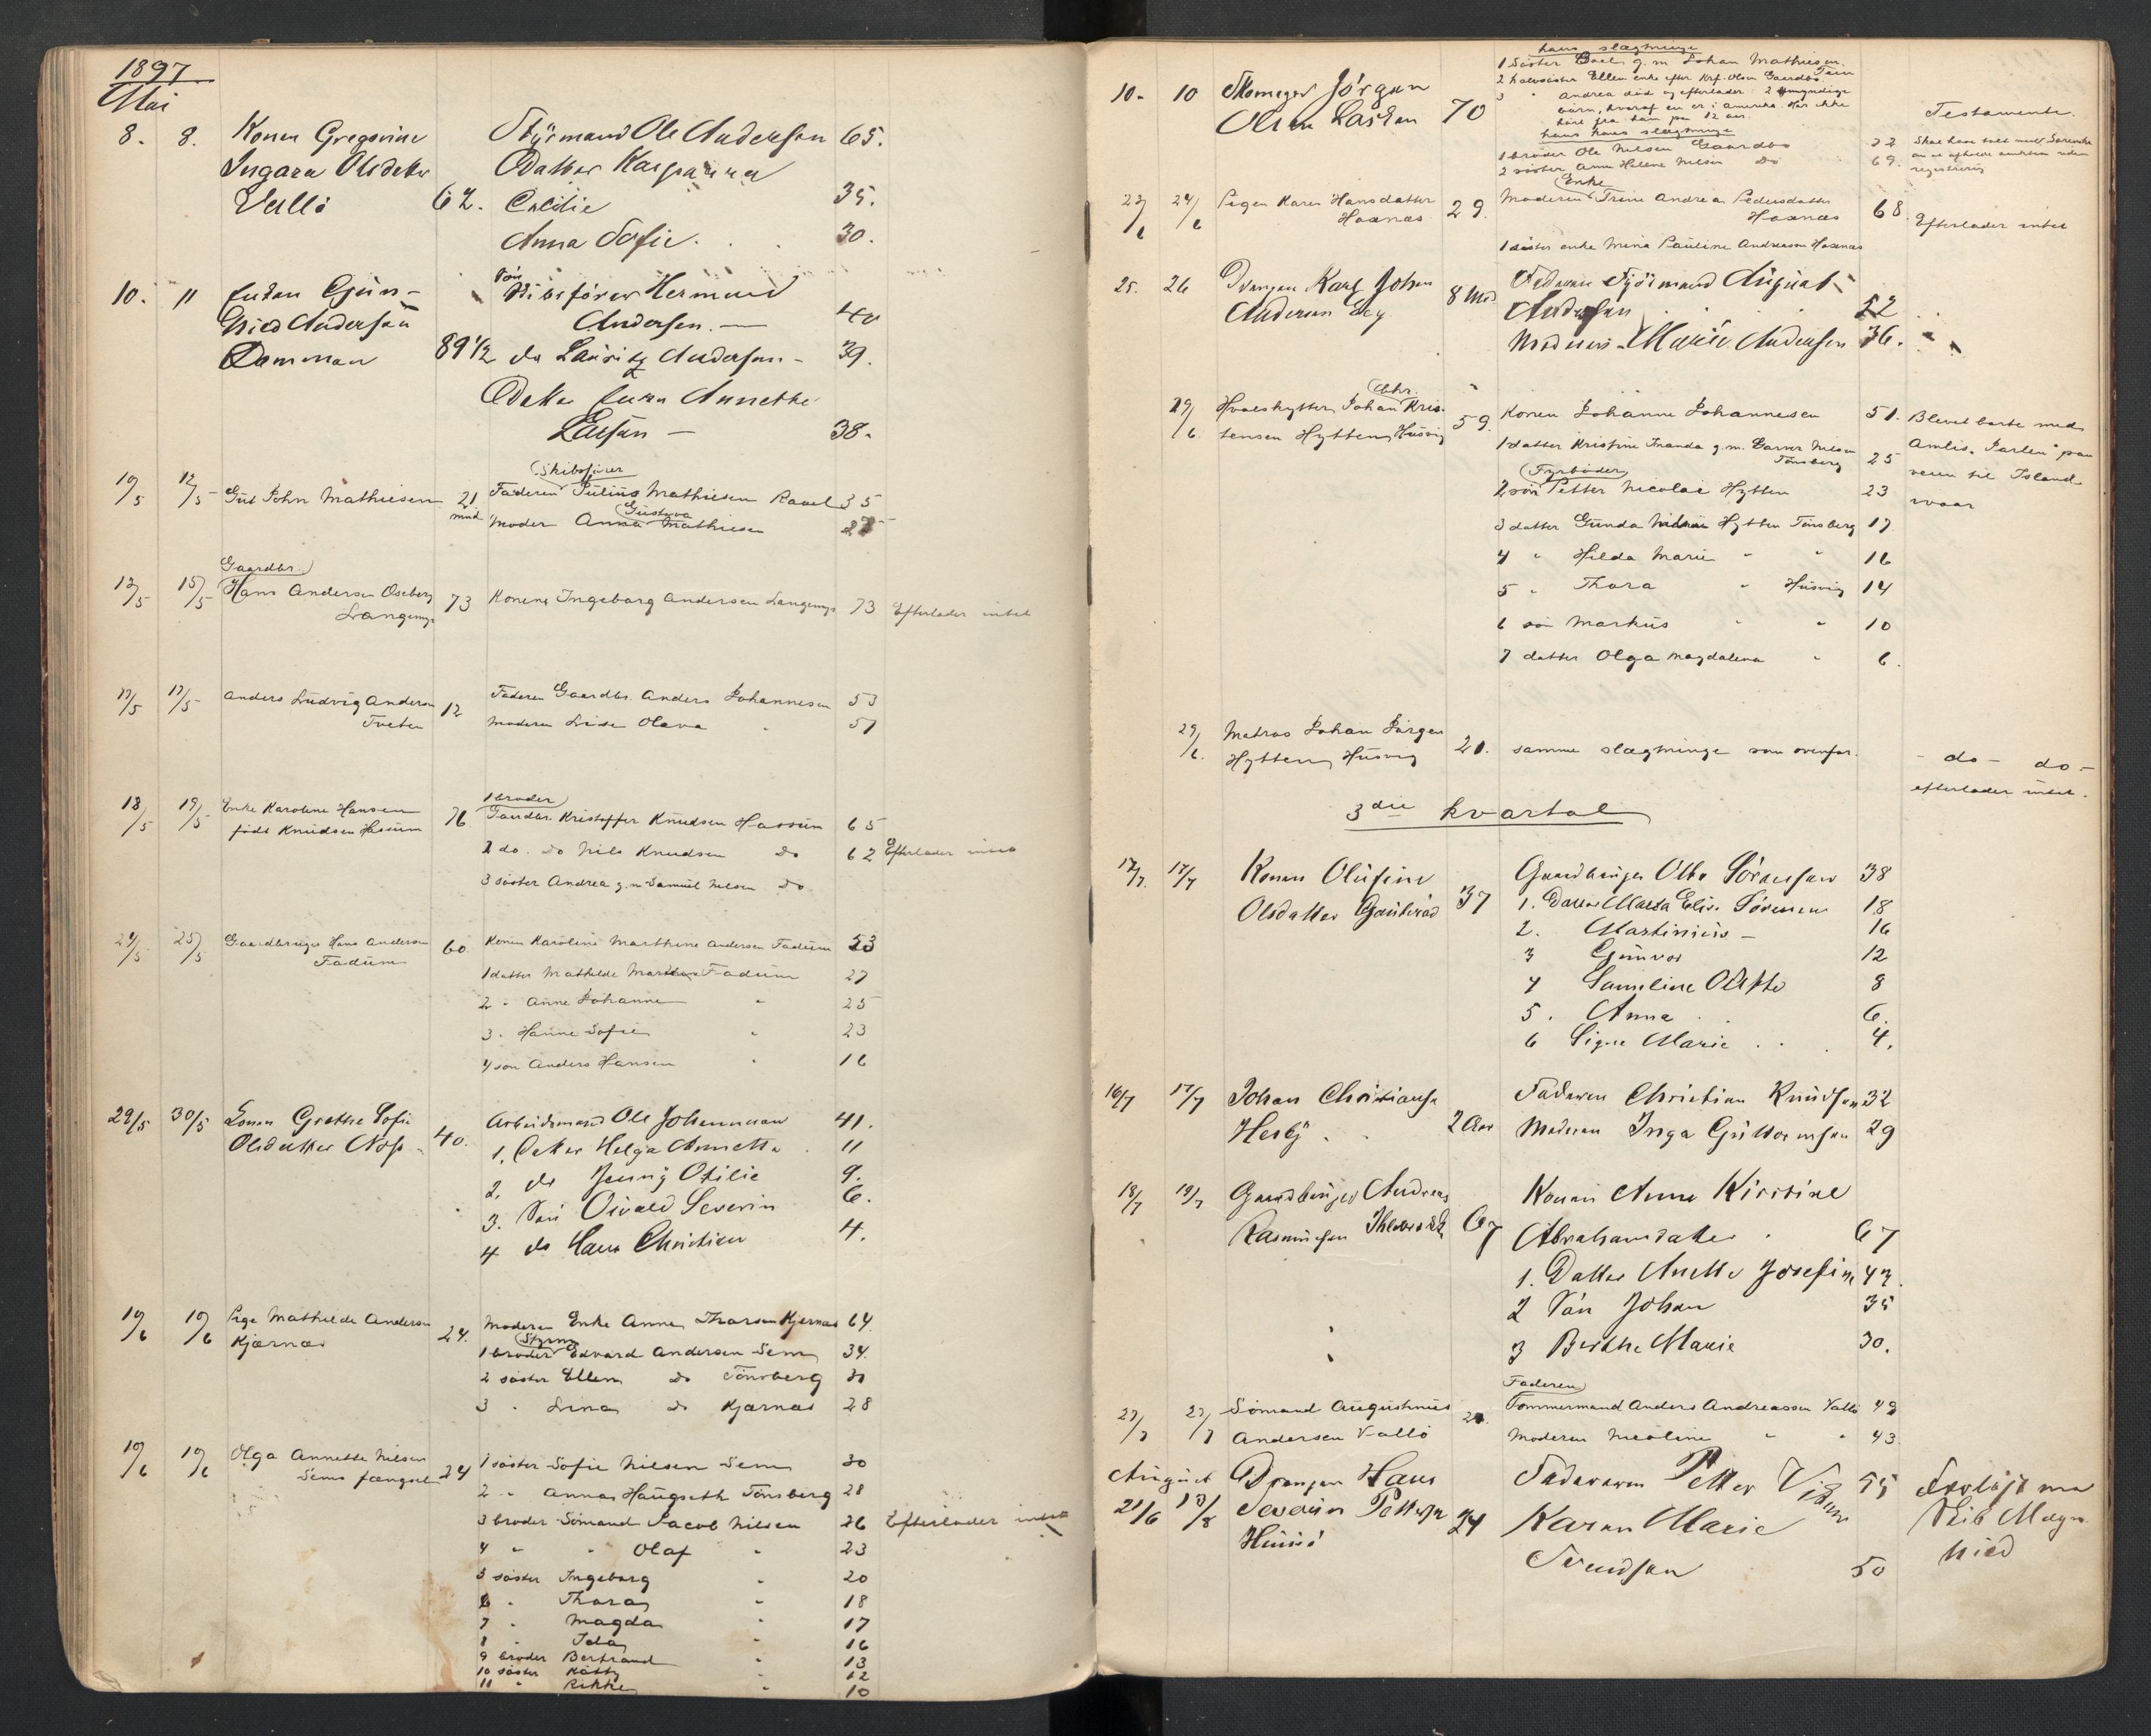 1897
Mai
8. 8. Konen Gregorine Styrmand Ole Andersen 65.
Ingara Olsdatter Datter Kasparina
Vallö 62. Cecilie 35.
Anna Sofie. 30.
10. 11 Enken Gun- Sön Skibsförer Hermand
hild Andersen Andersen. — 40
Rommen 89 1/2 do Lauritz Andersen - 39.
Datter Annethe
Larsen — 38.
10/5 12/5 Gut John Mathiesen 21 Skibsförer
mnd Faderen Julius Mathiesen 35
Moder Anna Gustava Mathiesen
Gaardbr.
13/5 15/5 Hans Andersen Oseberg
73 Konen Ingeborg Andersen 73 Efterlader intet
17/5 17/5 Anders Ludvig Andersen Faderen Gaardbr. Anders Johannesen 53
Tveten 12 Moderen Lise Olava " 51
18/5 19/5 Enke Karoline Hansen 1 broder
født Knudsen Hassum 76 Gaardbr. Kristoffer Knudsen Hassum 65
2 do. do Nils Knudsen do 62 Efterlader intet
3 søster Andrea g.m. Samuel Nelsen do
24/5 25/5 Gaardbruger Hans Andersen 60 Konen Karoline Marthine Andersen Fadum 53
Fadum 1 datter Mathilde Fadum 27
2 " Anne Johanne " 25
3. Hanne Sofie " 23
4 søn Anders Hansen " 16
29/5 30/5 Konen Grethe Sofie Arbeidsmand Ole Johannesen 41.
Olsdatter 40. 1. Datter Helga Annetta 11
2. do Jenny Otilie 9.
3. Sön Osvald Severin 6.
4 do Hans Christian 4.
10/6 10/6 Pige Mathilde Andersen Moderen Enke Anne Kjærnæs 64.
Kjærnæs 24. Styrm
1 broder Edvard Andersen Sem 34.
2 søster Ellen do Tönsberg 30
3 " Lina do Kjærnæs 28
10/6 10/6 Olga Annette Nilsen 1 søster Sofie Nilsen Sem 30
Sems fængsel 24 2 " Anna Haugseth Tönsberg 28
3 broder Sömand Jacob Nilsen 26 Efterlader intet
4 " " Olaf " 23
5 søster Ingeborg " 20
6 " Thora " 18
7 " Magda " 17
8 " Ida " 16
9 broder Bertrand " 13
10 søster Kätty " 12
11 " Rikke " 10
hans slægtninge
1 Søster g.m. Johan Mathiesen.
10. 10 Skomager Jörgen 2 halvsøster Ellen enke efter Krf. Olsen Gaardbo
Olsen Lasken 70 3 " Andrea død og efterlader 2 umyndige
børn, hvoraf en er i Amerika. Har ikke
hørt fra ham paa 12 aar. Testamente.
hans slægtninge
1 broder Ole Nilsen Gaardbo 72
2 søster Anne Helene Nilsen do 69.
23/6 24/6 Pigen Karen Hansdatter Enke
Hoxnæs 29. Moderen Trine Andrea Pedersdatter
Hoxnæs 68. Efterlader intet
1 søster enke Mina Pauline Andreasen Hoxnæs
25. 26 Drengen Karl Johan 8 Md Faderen August
Andersen Andersen 52
Moderen Marie Andersen 36.
29/6 Hvalskytter Johan Kris- 59. Konen Johanne Johannesen 51. Blevet borte med
tensen Hytten Husvig 1 datter Kristine Amanda g.m. Nilsen Amlie's "Jarlen" paa
Tönsberg 25 veien til Island
Fyrböder
2 søn Petter Nicolai Hytten 23 ivaar
3 datter Gunda Hytten Tönsberg 17
4 " Hilda Marie " " 16
5 " Thora " Husvig 14
6 søn Markus " " 10
7 datter Olga Magdalena " 6.
29/6. Matros Johan Jörgen
Hytten Husvig 20. samme slægtninge som ovenfor. - do - do -
efterlader intet.
3die kvartal
17/7. 17/7 Konen Olufine Gaardbruger Otto Sörensen 38
Olsdatter 37 1. Datter Elise Sörensen 18
2. Martinius - 16
3 Gunvor 12
4 8
5. Anna 6.
6 Signe Marie 4.
16/7 17/7 Johan Christiansen Faderen Christian Knudsen 32
Hesby. 2 Aar Moderen Inga Guttormsen 29
18/7 19/7 Gaardbruger Andreas Konen Anne Kirstine
Rasmussen 67 Abrahamsdatter 67
1. Datter Anette Josefine
2 Sön Johan 35
3 Berthe Marie 30.
Faderen
27/7 27/7 Sömand Augustinus Tommermand Anders Andreassen Vallö 49
Andersen Vallö Moderen Nicoline " " 43
August Drengen Hans Faderen Petter 55 Forlist med
21/6 13/8 Severin Pettersen 24 Karen Marie Skib Magn
Husö Svendsen 50 hild